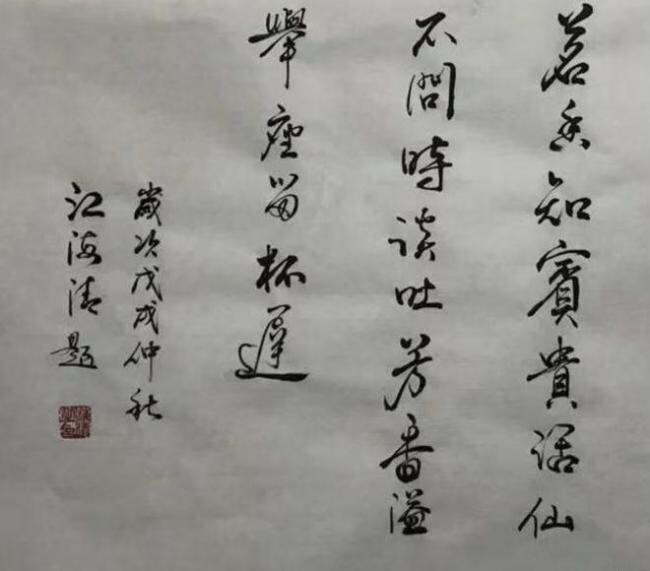 茗知賓貴話仙
不問時談吐芳香溢
舉座留杯遲
歲次戊戌仲秋
江海清題